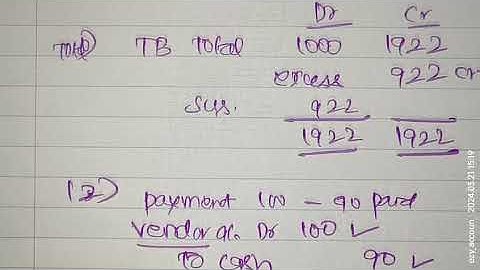 Dr Cr
TB Total 1000 1922
excess 922 Cr
Sus. 922
1922 1922
(2) payment 100 - 90 paid
vendor a/c Dr 100 ✓
To cash 90 ✓
ezy_account 2024-03-21 15:19